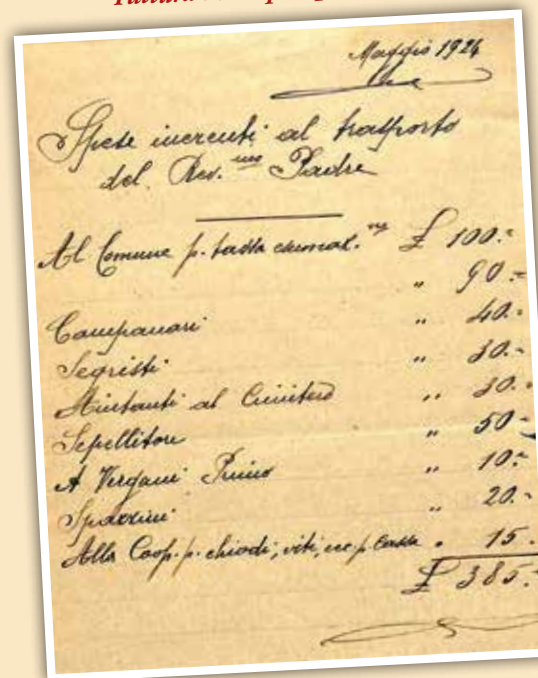 Maggio 1924
Spese inerenti al trasporto
del Rev.mo Padre
Al Comune p. tassa esumaz.ne £ 100.-
" 90.-
Campanari " 40.-
Segristi " 30.-
Aiutanti al Cimitero " 30.-
Sepellitore " 50.-
A Vergani Primo " 10.-
Spazzini " 20.-
Alla Coop. p. chiodi, viti, ecc p. cassa " 15.-
£ 385.-